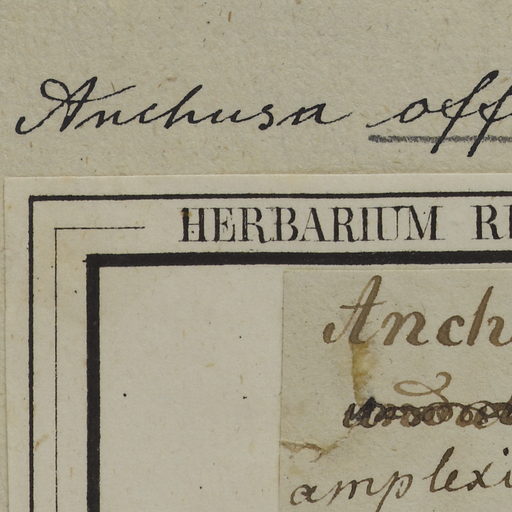 Anchusa off
HERBARIUM R
Anch
amplexi